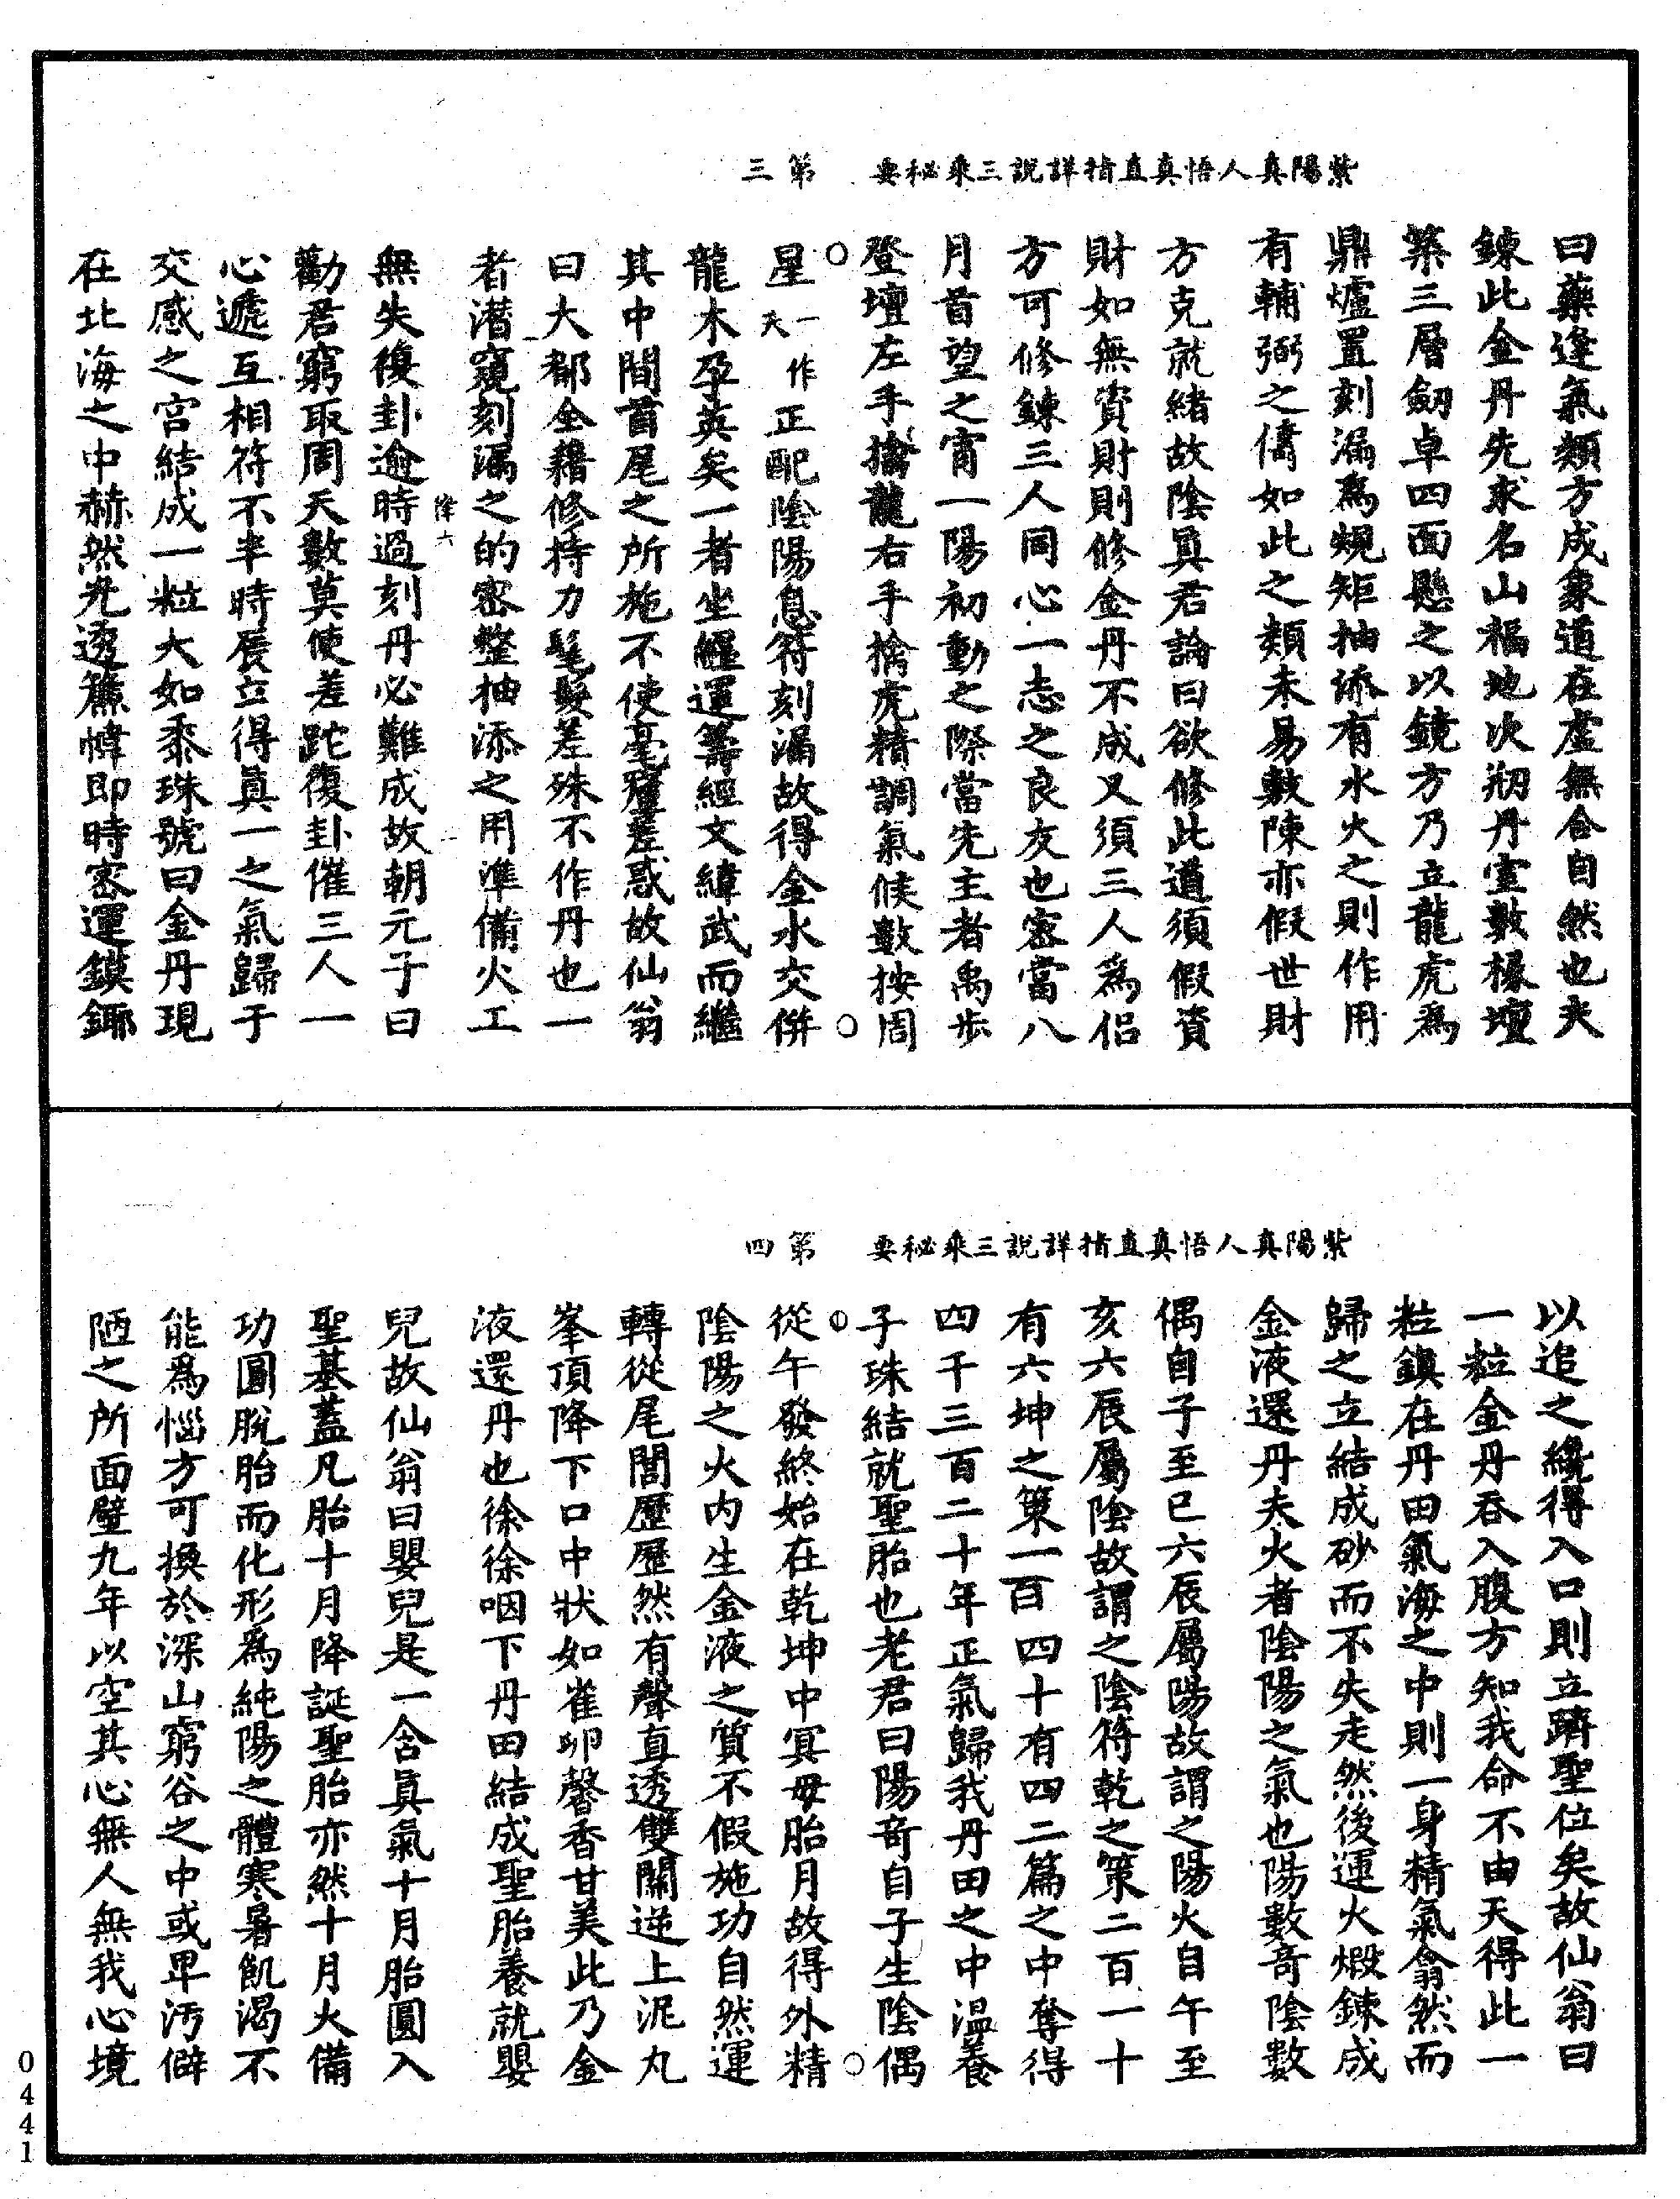 紫陽真人悟真直指詳說三乘秘要　第三
曰藥逢氣類方成象道在虛無合自然也夫
鍊此金丹先求名山福地次剏丹室數椽壇
築三層劒卓四面懸之以鏡方乃立龍虎爲
鼎爐置刻漏爲規矩抽添有水火之則作用
有輔弼之儔如此之類未易數陳亦假世財
方克就緒故陰真君論曰欲修此道須假資
財如無資財則修金丹不成又須三人爲侶
方可修鍊三人同心一志之良友也密當八
月首望之宵一陽初動之際當先主者禹步
登壇左手擒龍右手擒虎精調氣候數按周
星一作天正配陰陽息符刻漏故得金水交併
龍木孕英矣一者坐纏運籌經文緯武而繼
其中間首尾之所施不使毫釐差惑故仙翁
曰大都全藉修持力髦髮差殊不作丹也一
者潛窺刻漏之的密整抽添之用準備火工
律六
無失復卦逾時過刻丹必難成故朝元子曰
勸君窮取周天數莫使差跎復卦催三人一
心遞互相符不半時辰立得真一之氣歸于
交感之宮結成一粒大如黍珠號曰金丹現
在北海之中赫然光透簾幃即時密運鏌鎁
紫陽真人悟真直指詳說三乘秘要　第四
以追之纔得入口則立躋聖位矣故仙翁曰
一粒金丹吞入腹方知我命不由天得此一
粒鎮在丹田氣海之中則一身精氣翕然而
歸之立結成砂而不失走然後運火煅鍊成
金液還丹夫火者陰陽之氣也陽數奇陰數
偶自子至巳六辰屬陽故謂之陽火自午至
亥六辰屬陰故謂之陰符乾之策二百一十
有六坤之策一百四十有四二篇之中奪得
四千三百二十年正氣歸我丹田之中溫養
子珠結就聖胎也老君曰陽奇自子生陰偶
從午發終始在乾坤中冥母胎月故得外精
陰陽之火內生金液之質不假施功自然運
轉從尾閭歷歷然有聲直透雙關逆上泥丸
峯頂降下口中狀如雀卵馨香甘美此乃金
液還丹也徐徐咽下丹田結成聖胎養就嬰
兒故仙翁曰嬰兒是一含真氣十月胎圓入
聖基蓋凡胎十月降誕聖胎亦然十月火備
功圓脫胎而化形爲純陽之體寒暑飢渴不
能爲惱方可換於深山窮谷之中或卑污僻
陋之所面壁九年以空其心無人無我心境
0441